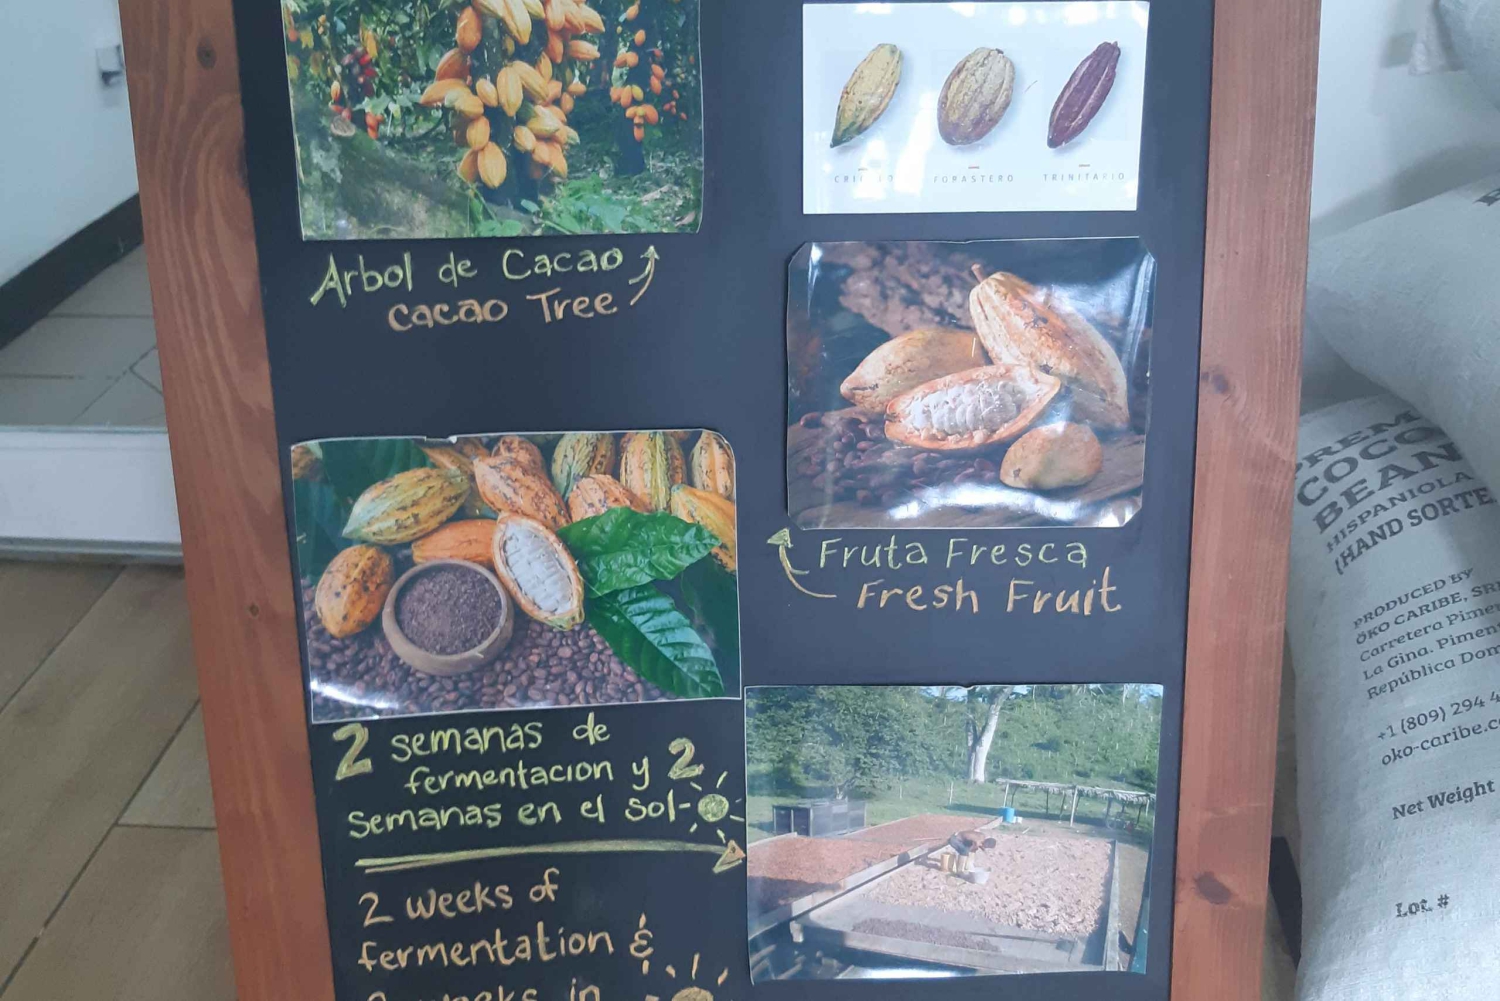 FORASTERO
TRINITARIO
Arbol de Cacao
Cacao Tree
Fruta Fresca
Fresh Fruit
2 semanas de
fermentacion y 2
semanas en el sol-
2 weeks of
fermentation &
weeks in
COCO
BEAN
HISPANIOLA
(HAND SORTE
PRODUCED BY
ÖKO CARIBE, SR
Carretera Pime
La Gina. Pimen
República Dom
+1 (809) 294 4
oko-caribe.c
Net Weight
Lot #